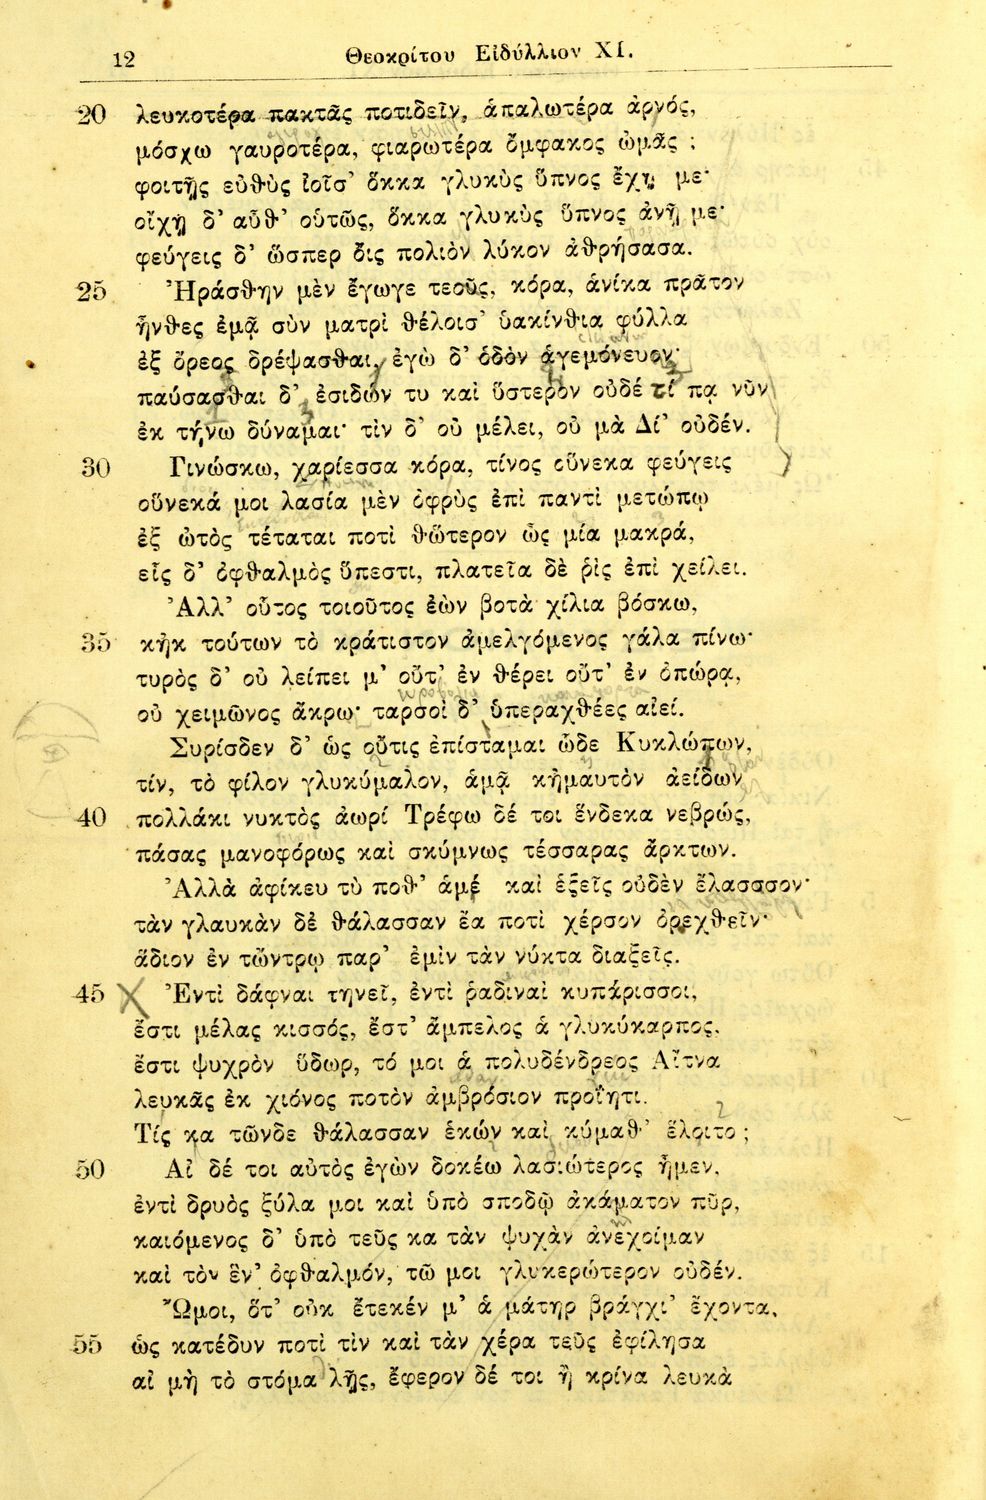 12 Θεοκρίτου Εἰδύλλιον XI.
20 λευκοτέρα πακτᾶς ποτιδεῖν, ἁπαλωτέρα ἀρνός,
μόσχω γαυροτέρα, φιαρωτέρα ὄμφακος ὠμᾶς ;
φοιτῇς εὐθὺς ἰοῖσ' ὅκκα γλυκὺς ὕπνος ἔχῃ με·
οἴχῃ δ' αὖθ' οὑτῶς, ὅκκα γλυκὺς ὕπνος ἀνῇ με·
φεύγεις δ' ὥσπερ ὄις πολιὸν λύκον ἀθρήσασα.
25 Ἠράσθην μὲν ἔγωγε τεοῦς, κόρα, ἁνίκα πρᾶτον
ἦνθες ἐμᾷ σὺν ματρὶ θέλοισ' ὑακίνθια φύλλα
ἐξ ὄρεος δρέψασθαι, ἐγὼ δ' ὁδὸν ἁγεμόνευον·
παύσασθαι δ' ἐσιδών τυ καὶ ὕστερον οὐδέ τί πᾳ νῦν
ἐκ τήνω δύναμαι· τὶν δ' οὐ μέλει, οὐ μὰ Δί' οὐδέν.
30 Γινώσκω, χαρίεσσα κόρα, τίνος οὕνεκα φεύγεις
οὕνεκά μοι λασία μὲν ὀφρὺς ἐπὶ παντὶ μετώπῳ
ἐξ ὠτὸς τέταται ποτὶ θὥτερον ὦς μία μακρά,
εἷς δ' ὀφθαλμὸς ὕπεστι, πλατεῖα δὲ ῥὶς ἐπὶ χείλει.
Ἀλλ' οὗτος τοιοῦτος ἐὼν βοτὰ χίλια βόσκω,
35 κἠκ τούτων τὸ κράτιστον ἀμελγόμενος γάλα πίνω·
τυρὸς δ' οὐ λείπει μ' οὔτ' ἐν θέρει οὔτ' ἐν ὀπώρᾳ,
οὐ χειμῶνος ἄκρω· ταρσοὶ δ' ὑπεραχθέες αἰεί.
Συρίσδεν δ' ὡς οὔτις ἐπίσταμαι ὧδε Κυκλώπων,
τίν, τὸ φίλον γλυκύμαλον, ἁμᾷ κἠμαυτὸν ἀείδων
40 πολλάκι νυκτὸς ἀωρί Τρέφω δέ τοι ἕνδεκα νεβρώς,
πάσας μανοφόρως καὶ σκύμνως τέσσαρας ἄρκτων.
Ἀλλὰ ἀφίκευ τὺ ποθ' ἁμέ καὶ ἑξεῖς οὐδὲν ἔλασσσον·
τὰν γλαυκὰν δὲ θάλασσαν ἔα ποτὶ χέρσον ὀρεχθεῖν·
ἅδιον ἐν τὤντρῳ παρ' ἐμὶν τὰν νύκτα διαξεῖς.
45 Ἐντὶ δάφναι τηνεῖ, ἐντὶ ῥαδιναὶ κυπάρισσοι,
ἔστι μέλας κισσός, ἔστ' ἄμπελος ἁ γλυκύκαρπος,
ἔστι ψυχρὸν ὕδωρ, τό μοι ἁ πολυδένδρεος Αἴτνα
λευκᾶς ἐκ χιόνος ποτὸν ἀμβρόσιον προΐητι.
Τίς κα τῶνδε θάλασσαν ἑκών καὶ κύμαθ' ἕλοιτο ;
50 Αἰ δέ τοι αὐτὸς ἐγὼν δοκέω λασιώτερος ἦμεν,
ἐντὶ δρυὸς ξύλα μοι καὶ ὑπὸ σποδῷ ἀκάματον πῦρ,
καιόμενος δ' ὑπὸ τεῦς κα τὰν ψυχὰν ἀνεχοίμαν
καὶ τὸν ἓν' ὀφθαλμόν, τῶ μοι γλυκερώτερον οὐδέν.
Ὤμοι, ὅτ' οὐκ ἔτεκέν μ' ἁ μάτηρ βράγχι' ἔχοντα,
55 ὡς κατέδυν ποτὶ τὶν καὶ τὰν χέρα τεῦς ἐφίλησα
αἰ μὴ τὸ στόμα λῇς, ἔφερον δέ τοι ἢ κρίνα λευκὰ